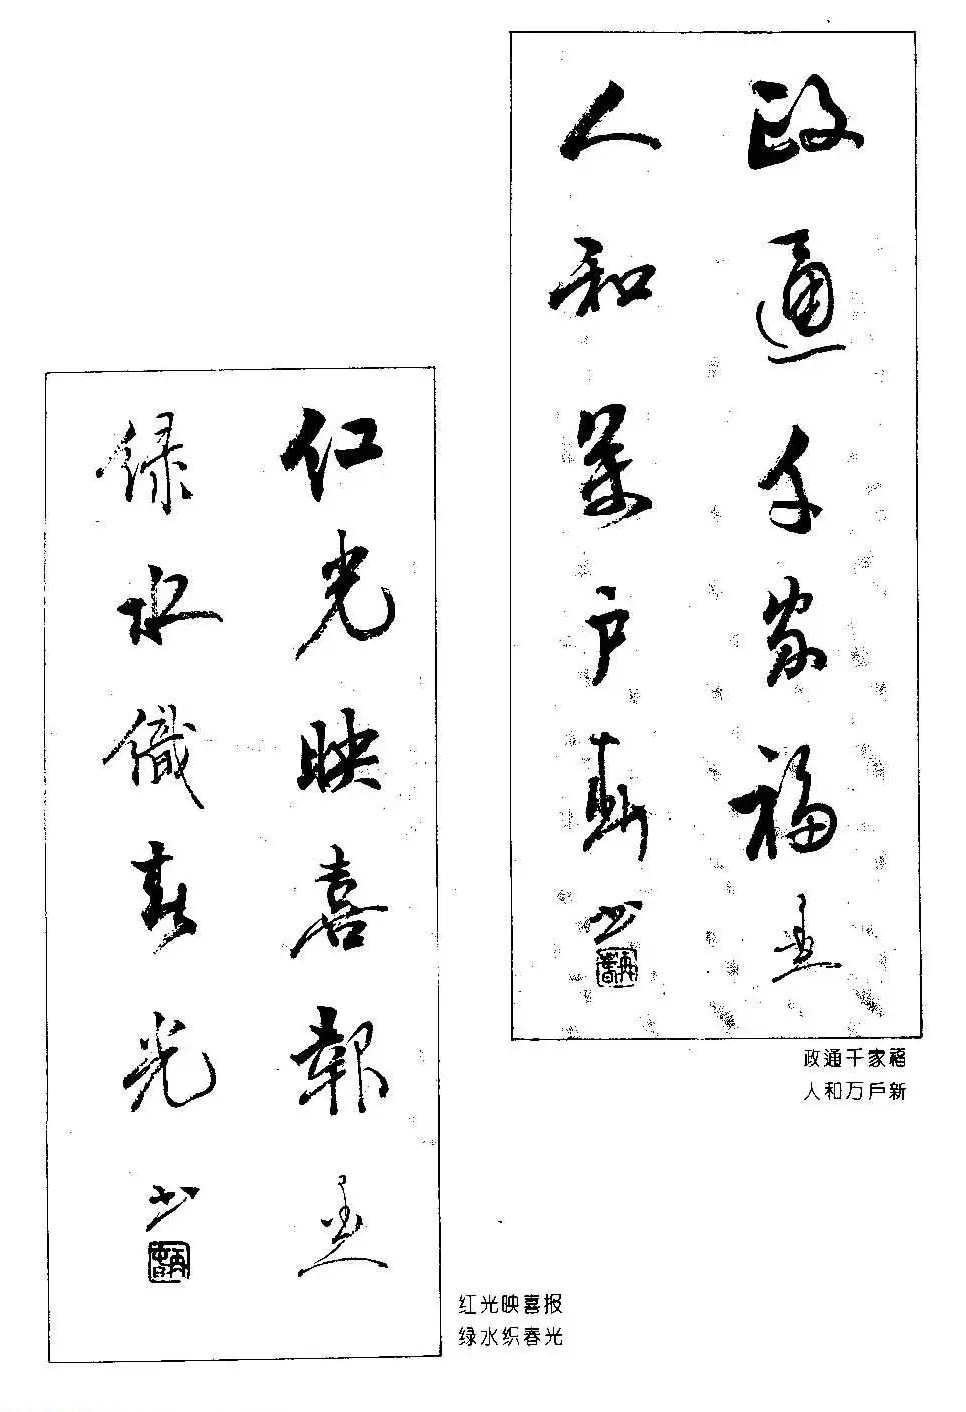 政通千家福
人和萬户新
书
政通千家福
人和万户新
红光映喜报
绿水织春光
书
红光映喜报
绿水织春光